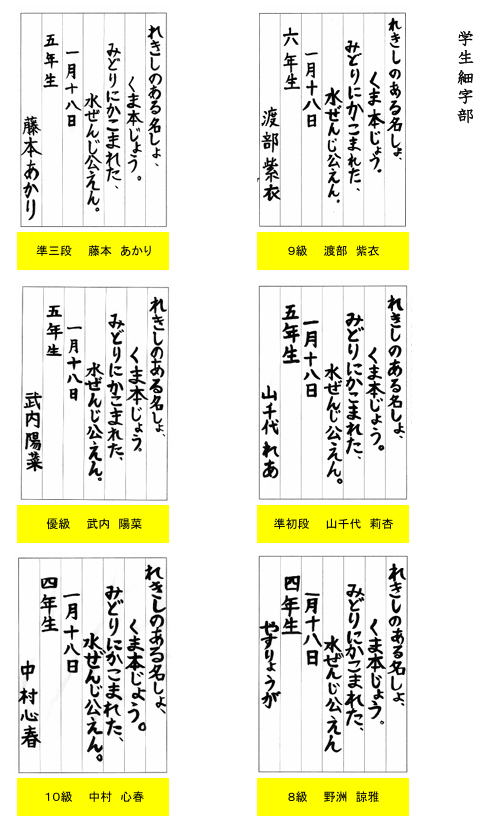 学生細字部
れきしのある名しょ、
くま本じょう。
みどりにかこまれた、
水ぜんじ公えん。
一月十八日
六年生
渡部紫衣
９級　渡部 紫衣
れきしのある名しょ、
くま本じょう。
みどりにかこまれた、
水ぜんじ公えん。
一月十八日
五年生
藤本あかり
準三段　藤本 あかり
れきしのある名しょ、
くま本じょう。
みどりにかこまれた、
水ぜんじ公えん。
一月十八日
五年生
山千代れあ
準初段　山千代 莉杏
れきしのある名しょ、
くま本じょう。
みどりにかこまれた、
水ぜんじ公えん。
一月十八日
五年生
武内陽菜
優級　武内 陽菜
れきしのある名しょ、
くま本じょう。
みどりにかこまれた、
水ぜんじ公えん
一月十八日
四年生
やすりょうが
８級　野洲 諒雅
れきしのある名しょ、
くま本じょう。
みどりにかこまれた、
水ぜんじ公えん。
一月十八日
四年生
中村心春
１０級　中村 心春